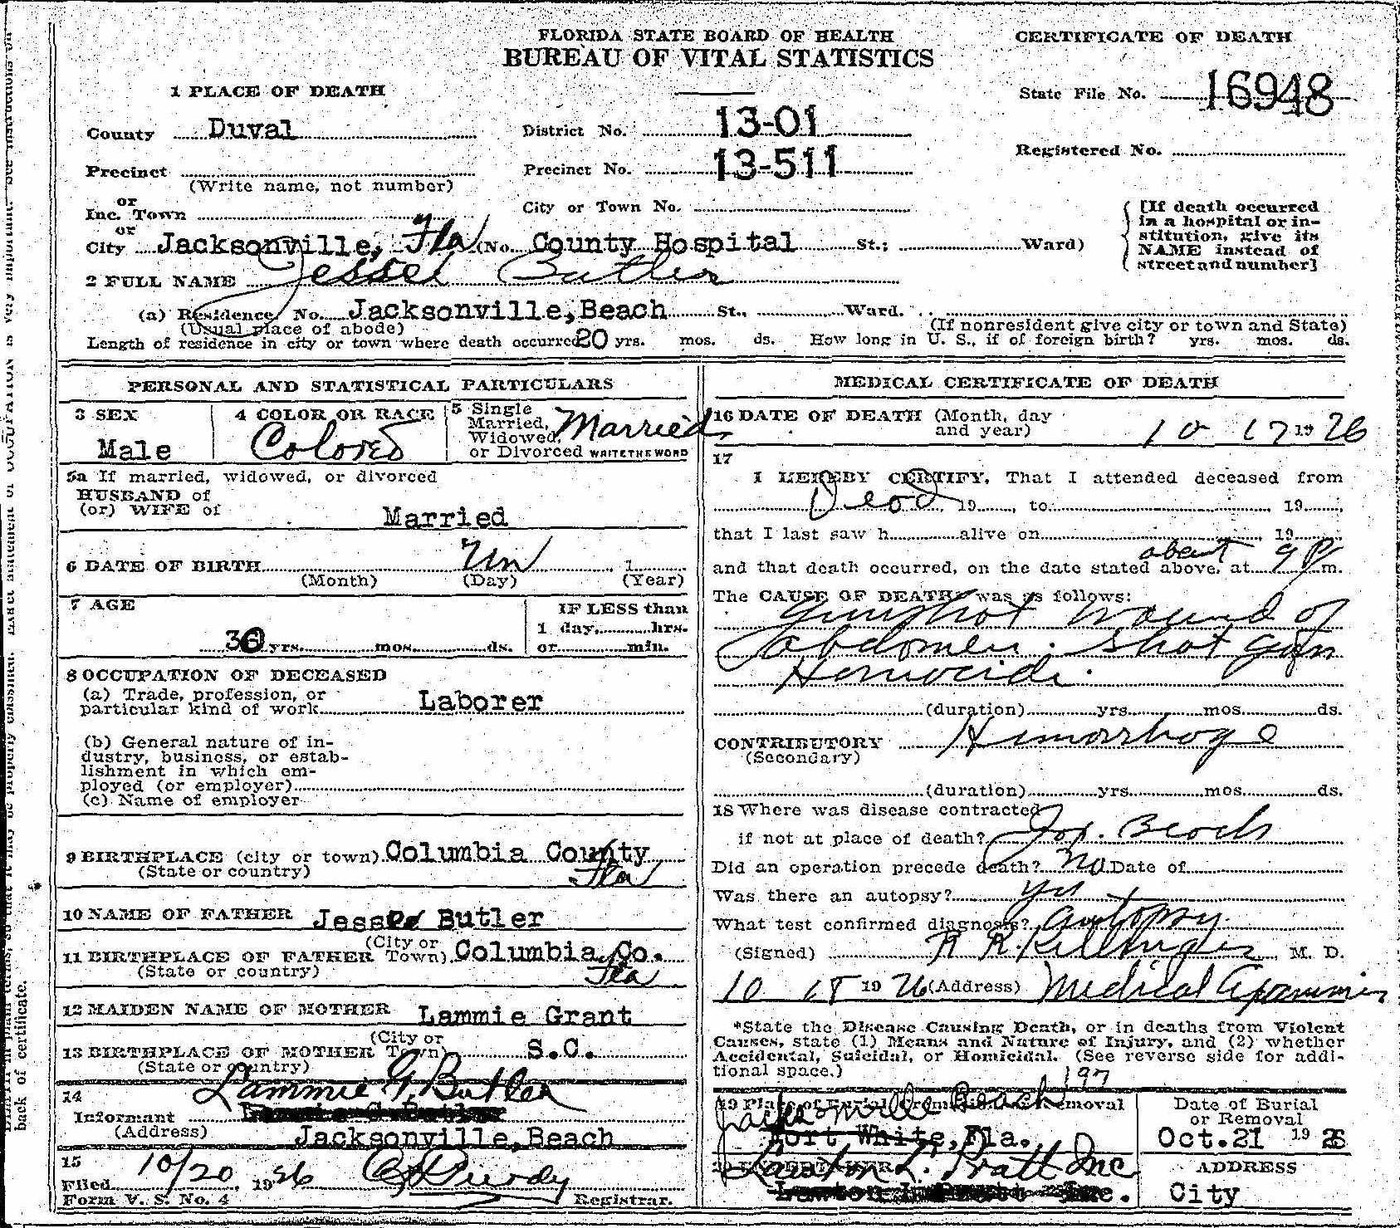 FLORIDA STATE BOARD OF HEALTH
BUREAU OF VITAL STATISTICS
CERTIFICATE OF DEATH
State File No. 16948
1 PLACE OF DEATH
County Duval
District No. 13-01
Registered No.
Precinct
(Write name, not number)
Precinct No. 13-511
or
Inc. Town
City or Town No.
or
City Jacksonville, Fla (No. County Hospital St.; Ward)
[If death occurred
in a hospital or in-
stitution, give its
NAME instead of
street and number]
2 FULL NAME Jessel Butler
(a) Residence, No. Jacksonville, Beach St., Ward.
(Usual place of abode)
(If nonresident give city or town and State)
Length of residence in city or town where death occurred 20 yrs. mos. ds. How long in U. S., if of foreign birth? yrs. mos. ds.
PERSONAL AND STATISTICAL PARTICULARS
3 SEX
Male
4 COLOR OR RACE
Colored
5 Single
Married,
Widowed,
or Divorced WRITE THE WORD
Married
5a If married, widowed, or divorced
HUSBAND of
(or) WIFE of
Married
6 DATE OF BIRTH Un 1
(Month) (Day) (Year)
7 AGE
36 yrs. mos. ds.
IF LESS than
1 day, hrs.
or min.
8 OCCUPATION OF DECEASED
(a) Trade, profession, or
particular kind of work Laborer
(b) General nature of in-
dustry, business, or estab-
lishment in which em-
ployed (or employer)
(c) Name of employer
9 BIRTHPLACE (city or town) Columbia County
(State or country) Fla
10 NAME OF FATHER Jesse Butler
11 BIRTHPLACE OF FATHER (City or Town) Columbia, Co.
(State or country) Fla
12 MAIDEN NAME OF MOTHER Lammie Grant
13 BIRTHPLACE OF MOTHER (City or Town) S.C.
(State or country)
14
Lammie G. Butler
Informant
(Address) Jacksonville, Beach
15
Filed 10/20 1926 Registrar.
Form V. S. No. 4
MEDICAL CERTIFICATE OF DEATH
16 DATE OF DEATH (Month, day
and year) 10 17 19 26
17
I HEREBY CERTIFY, That I attended deceased from
Dead 19 , to 19 ,
that I last saw h alive on 19
and that death occurred, on the date stated above, at about 9 P m.
The CAUSE OF DEATH* was as follows:
gunshot wound of
abdomen. Shot gun
Homocide.
(duration) yrs. mos. ds.
CONTRIBUTORY Hemorrhage
(Secondary)
(duration) yrs. mos. ds.
18 Where was disease contracted
if not at place of death? Jax. Beach
Did an operation precede death? no Date of
Was there an autopsy? yes
What test confirmed diagnosis? autopsy
(Signed) R R. Killinger, M. D.
10 18 19 26 (Address) Medical Examiner
*State the Disease Causing Death, or in deaths from Violent
Causes, state (1) Means and Nature of Injury, and (2) whether
Accidental, Suicidal, or Homicidal. (See reverse side for addi-
tional space.)
197
19 Place of Burial, Cremation or Removal
Jacksonville Beach
Fort White, Fla.
Date of Burial
or Removal
Oct. 21 19 26
20 UNDERTAKER
Lawton L. Pratt Inc
Lawton L Pratt Inc.
ADDRESS
City
back of certificate.